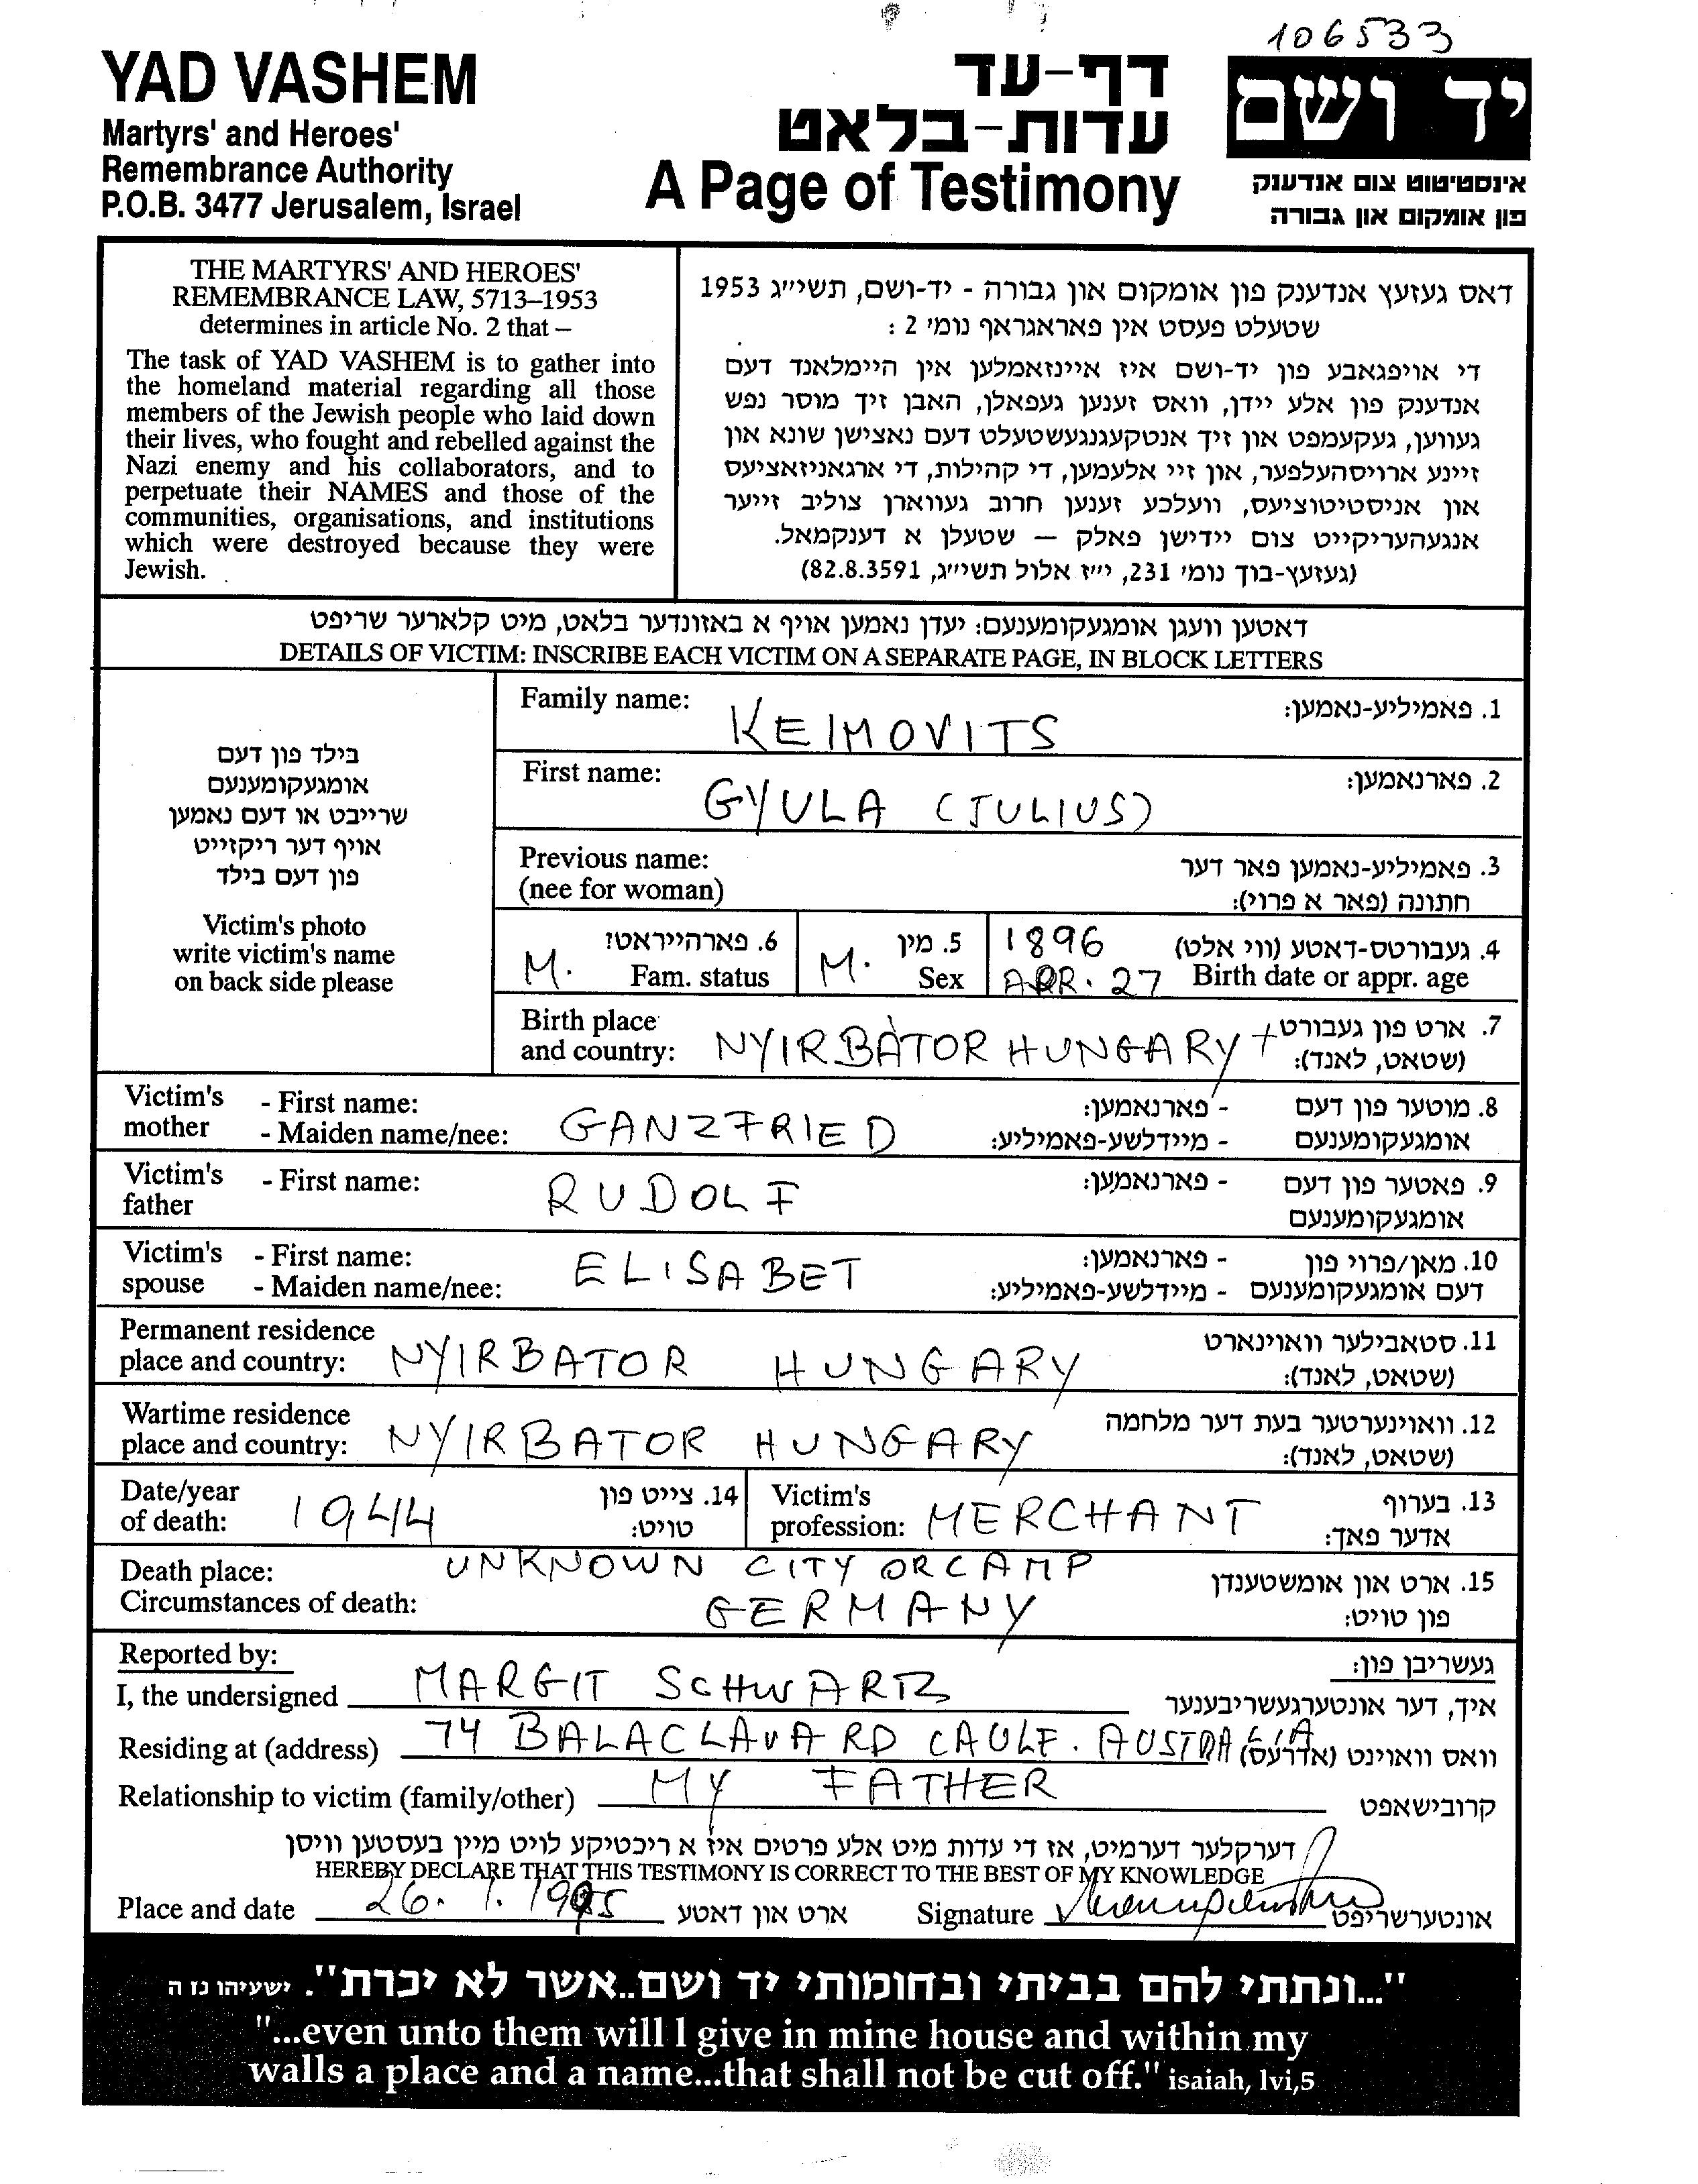 106533
YAD VASHEM
Martyrs' and Heroes'
Remembrance Authority
P.O.B. 3477 Jerusalem, Israel
דף-עד
עדות-בלאט
A Page of Testimony
יד ושם
אינסטיטוט צום אנדענק
פון אומקום און גבורה
THE MARTYRS' AND HEROES'
REMEMBRANCE LAW, 5713–1953
determines in article No. 2 that –
The task of YAD VASHEM is to gather into
the homeland material regarding all those
members of the Jewish people who laid down
their lives, who fought and rebelled against the
Nazi enemy and his collaborators, and to
perpetuate their NAMES and those of the
communities, organisations, and institutions
which were destroyed because they were
Jewish.
דאס געזעץ אנדענק פון אומקום און גבורה - יד-ושם, תשי״ג 1953
שטעלט פעסט אין פאראגראף נומי 2 :
די אויפגאבע פון יד-ושם איז איינזאמלען אין היימלאנד דעם
אנדענק פון אלע יידן, וואס זענען געפאלן, האבן זיך מוסר נפש
געווען, געקעמפט און זיך אנטקעגנגעשטעלט דעם נאצישן שונא און
זיינע ארויסהעלפער, און זיי אלעמען, די קהילות, די ארגאניזאציעס
און אניסטיטוציעס, וועלכע זענען חרוב געווארן צוליב זייער
אנגעהעריקייט צום יידישן פאלק — שטעלן א דענקמאל.
(געזעץ-בוך נומי 231, י״ז אלול תשי״ג, 82.8.3591)
דאטען וועגן אומגעקומענעם: יעדן נאמען אויף א באזונדער בלאט, מיט קלארער שריפט
DETAILS OF VICTIM: INSCRIBE EACH VICTIM ON A SEPARATE PAGE, IN BLOCK LETTERS
בילד פון דעם
אומגעקומענעם
שרייבט או דעם נאמען
אויף דער ריקזייט
פון דעם בילד
Victim's photo
write victim's name
on back side please
Family name: KEIMOVITS 1. פאמיליע-נאמען:
First name: GYULA (JULIUS) 2. פארנאמען:
Previous name: 3. פאמיליע-נאמען פאר דער
(nee for woman) חתונה (פאר א פרוי):
6. פארהייראט? 5. מין 1896 4. געבורטס-דאטע (ווי אלט)
M. Fam. status M. Sex APR. 27 Birth date or appr. age
Birth place 7. ארט פון געבורט
and country: NYIRBÀTOR HUNGARY (שטאט, לאנד):
Victim's - First name: - פארנאמען: 8. מוטער פון דעם
mother - Maiden name/nee: GANZFRIED - מיידלשע-פאמיליע: אומגעקומענעם
Victim's - First name: RUDOLF - פארנאמען: 9. פאטער פון דעם
father אומגעקומענעם
Victim's - First name: ELISABET - פארנאמען: 10. מאן/פרוי פון
spouse - Maiden name/nee: - מיידלשע-פאמיליע: דעם אומגעקומענעם
Permanent residence 11. סטאבילער וואוינארט
place and country: NYIRBATOR HUNGARY (שטאט, לאנד):
Wartime residence 12. וואוינערטער בעת דער מלחמה
place and country: NYIRBATOR HUNGARY (שטאט, לאנד):
Date/year 14. צייט פון Victim's 13. בערוף
of death: 1944 טויט: profession: MERCHANT אדער פאך:
Death place: UNKNOWN CITY OR CAMP 15. ארט און אומשטענדן
Circumstances of death: GERMANY פון טויט:
Reported by: געשריבן פון:
I, the undersigned MARGIT SCHWARTZ איך, דער אונטערגעשריבענער
Residing at (address) 74 BALACLAVA RD CAULF. AUSTRALIA וואס וואוינט (אדרעס)
Relationship to victim (family/other) MY FATHER קרובישאפט
דערקלער דערמיט, אז די עדות מיט אלע פרטים איז א ריכטיקע לויט מיין בעסטען וויסן
HEREBY DECLARE THAT THIS TESTIMONY IS CORRECT TO THE BEST OF MY KNOWLEDGE
Place and date 26. 1. 1995 ארט און דאטע Signature אונטערשריפט
"...ונתתי להם בביתי ובחומותי יד ושם..אשר לא יכרת". ישעיהו נז ה
"...even unto them will I give in mine house and within my
walls a place and a name...that shall not be cut off." isaiah, lvi,5